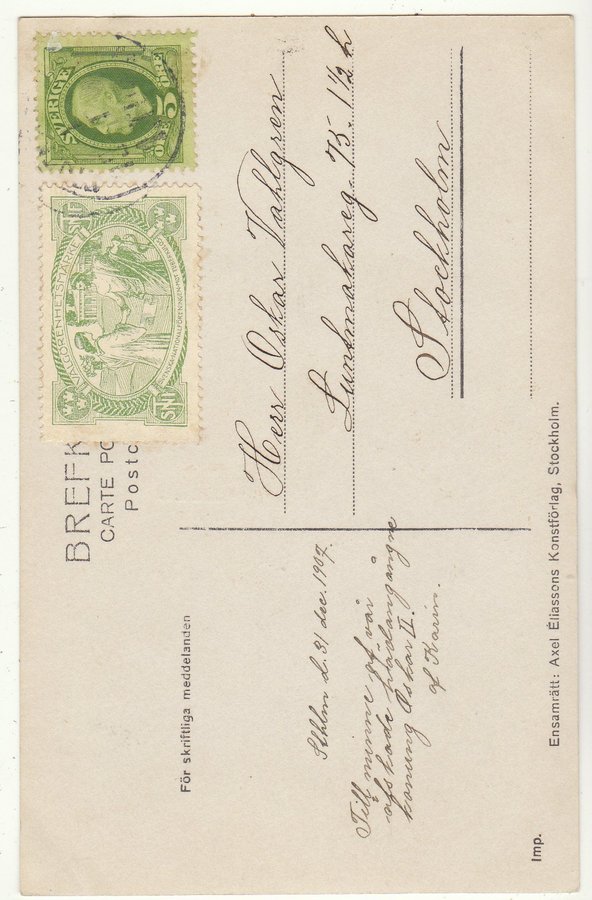 BREFK
CARTE PO
Postc
För skriftliga meddelanden
Sthlm d. 31 dec. 1907.
Till minne af vår
älskade hädangångne
konung Oskar II.
af Karin.
SVERIGE
5
ÖRE
VÄLGÖRENHETSMÄRKE
Herr Oskar Vahlgren
Luntmakareg. 75. 1 ½ h
Stockholm
Ensamrätt: Axel Eliassons Konstförlag, Stockholm.
Imp.